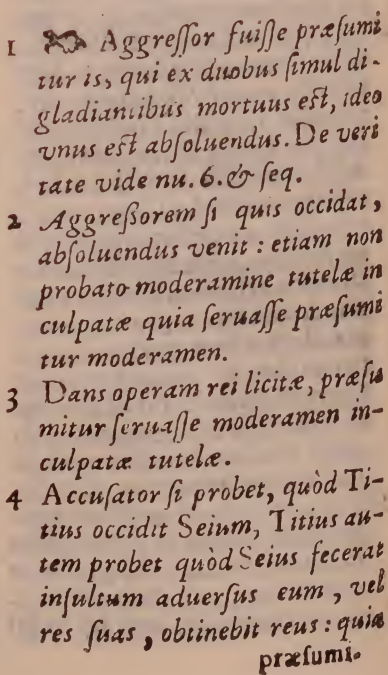 1 Aggreſſor fuiſſe præſumi
tur is, qui ex duobus ſimul di-
gladiantibus mortuus eſt, ideo
vnus eſt abſoluendus. De veri
tate vide nu. 6. & ſeq.
2 Aggreßorem ſi quis occidat,
abſoluendus venit : etiam non
probato moderamine tutelæ in
culpatæ quia ſeruaſſe præſumi
tur moderamen.
3 Dans operam rei licitæ, præſu
mitur ſeruaſſe moderamen in-
culpatæ tutelæ.
4 Accuſator ſi probet, quòd Ti-
tius occidit Seium, Titius au-
tem probet quòd Seius fecerat
inſultum aduerſus eum, vel
res ſuas, obtinebit reus : quia
præſumi-